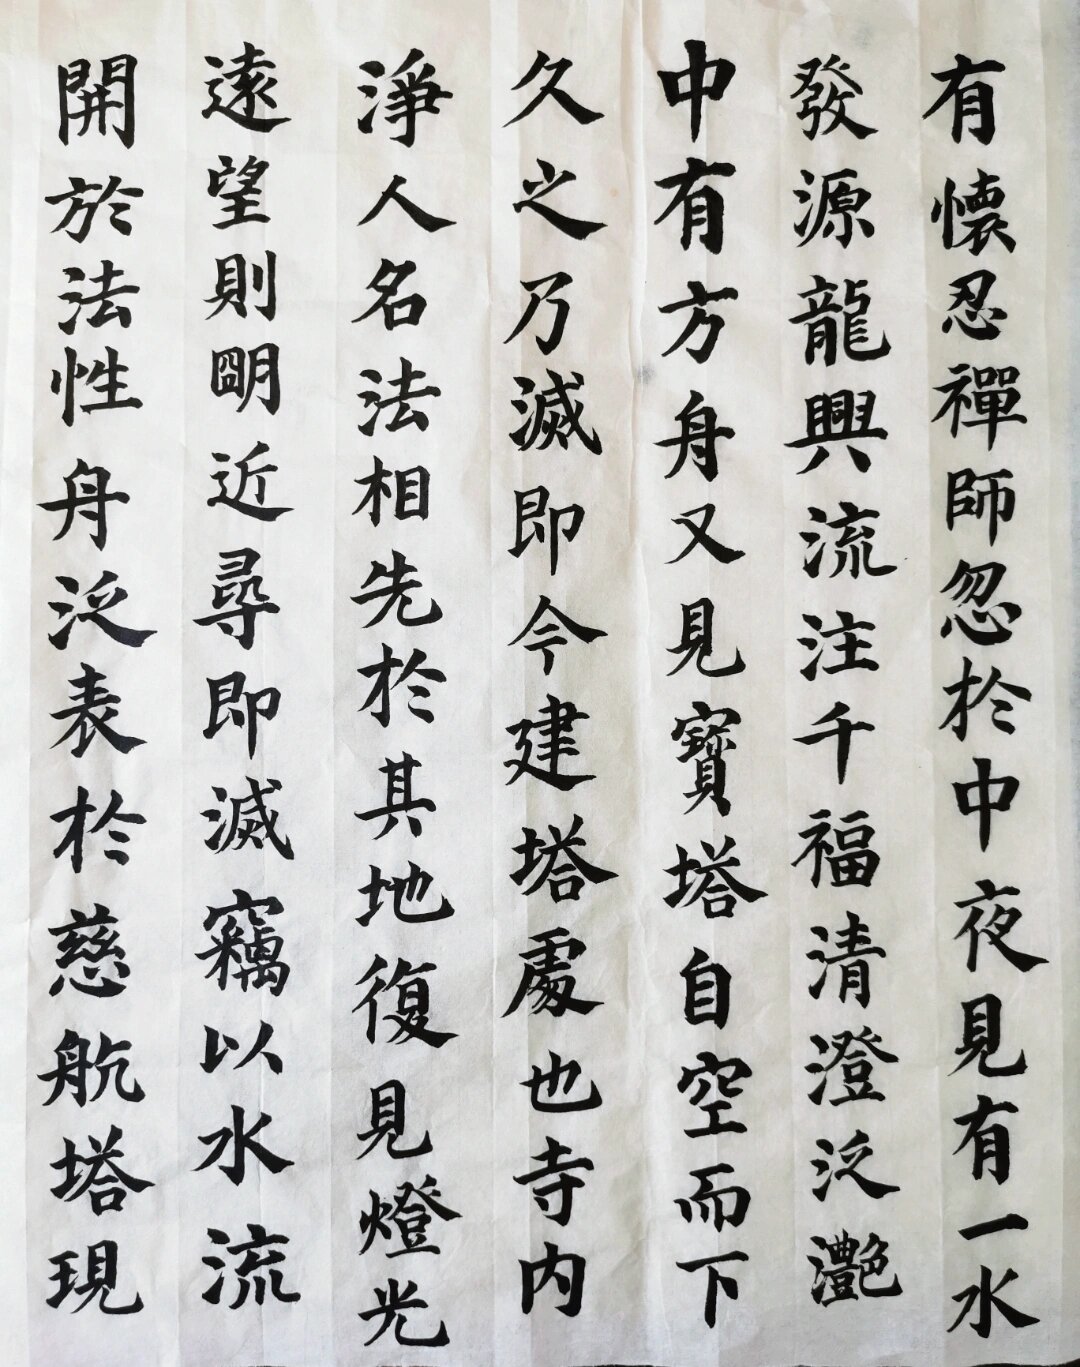 有懷忍禪師忽於中夜見有一水
發源龍興流注千福清澄泛灧
中有方舟又見寶塔自空而下
久之乃滅即今建塔處也寺內
淨人名法相先於其地復見燈光
遠望則明近尋即滅竊以水流
開於法性舟泛表於慈航塔現